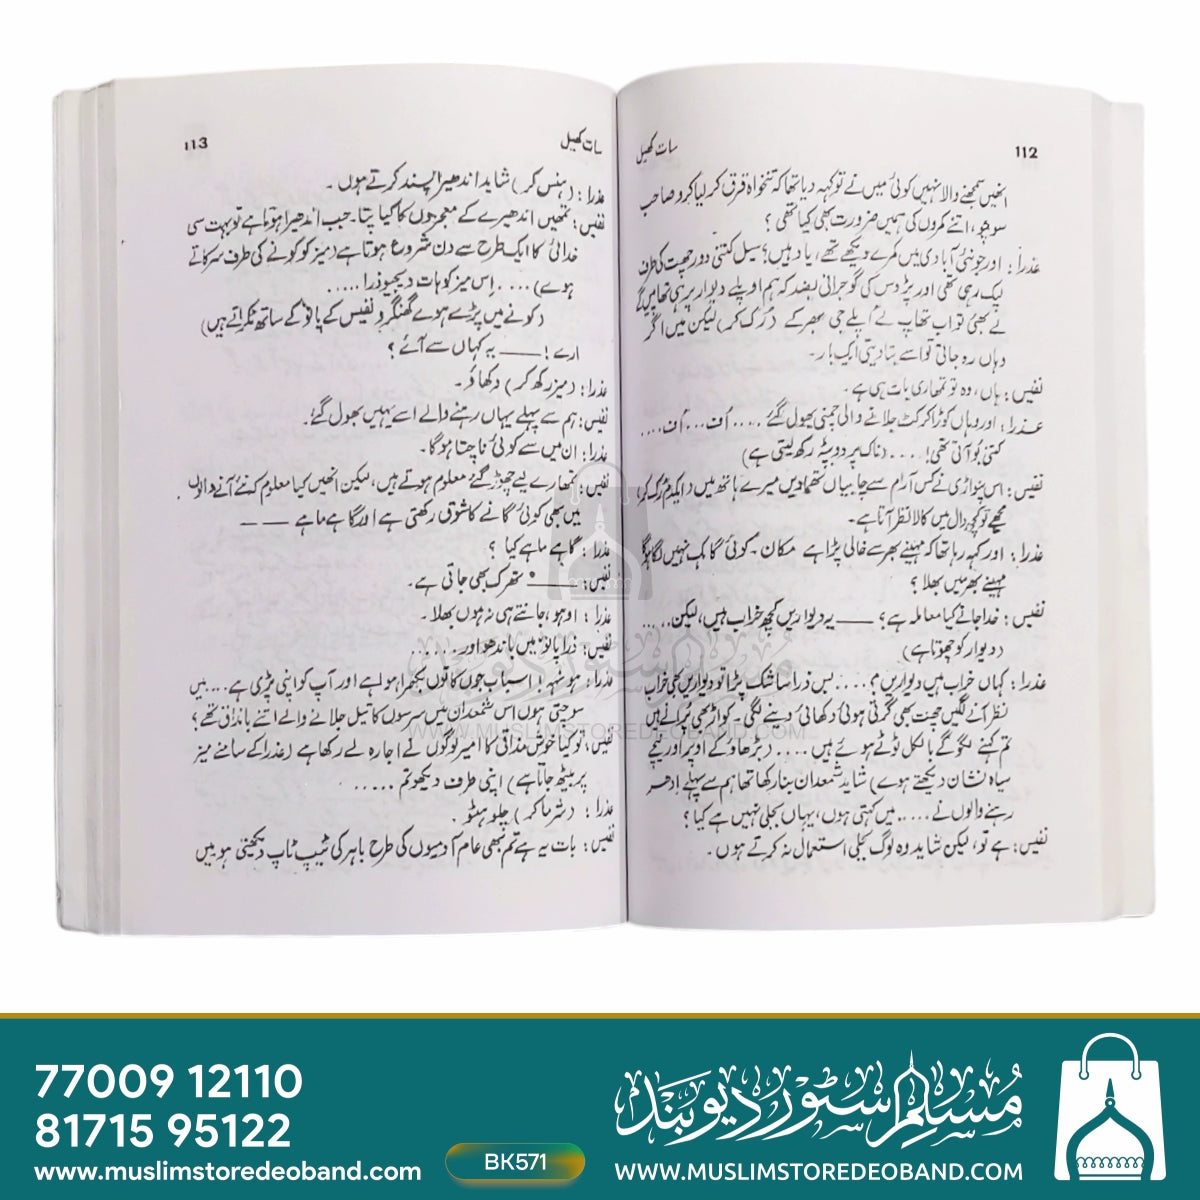 112
سات کھیل
انھیں سمجھنے والا نہیں کوئی میں نے تو کہہ دیا تھا کہ تنخواہ قرق کر لیا کرو صاحب
سوچو، اتنے کمروں کی ہمیں ضرورت بھی کیا تھی ؟
عذرا: اور جو نئی آبادی میں کمرے دیکھے تھے، یاد ہیں؟ سیل کتنی دور چھت کی طرف
لپک رہی تھی اور پڑوس کی گوجرانی بضد کہ ہم اوپلے دیوار پر ہی تھاپیں گے
لے بھئی تو اب تھاپ لے اُپلے جی بھر کے (رُک کر) لیکن میں اگر
وہاں رہ جاتی تو اسے بتا دیتی ایک بار۔
نفیس: ہاں، وہ تو تمھاری بات ہی ہے۔
عذرا: اور وہاں کوڑا کرکٹ جلانے والی چمنی بھول گئے ..... اُف ... اُف ....
کتنی بُو آتی تھی! .... (ناک پر دوپٹہ رکھ لیتی ہے)
نفیس: اس پنواڑی نے کس آرام سے چابیاں تھما دیں میرے ہاتھ میں (ایکدم رُک کر)
مجھے تو کچھ دال میں کالا نظر آتا ہے۔
عذرا: اور کہہ رہا تھا کہ مہینے بھر سے خالی پڑا ہے مکان۔ کوئی گاہک نہیں لگا ہوگا
مہینے بھر میں بھلا ؟
نفیس: خدا جانے کیا معاملہ ہے؟ —— یہ دیواریں کچھ خراب ہیں، لیکن.....
(دیوار کو چھوتا ہے)
عذرا: کہاں خراب ہیں دیواریں؟ .... بس ذرا سا شک پڑا تو دیواریں بھی خراب
نظر آنے لگیں چھت بھی گرتی ہوئی دکھائی دینے لگی۔ کواڑ بھی پُرانے ہیں
تم کہنے لگو گے بالکل ٹوٹے ہوئے ہیں .... (بڑھاؤ کے اوپر اور نیچے
سیاہ نشان دیکھتے ہوے) شاید شمعدان بنا رکھا تھا ہم سے پہلے اِدھر
رہنے والوں نے ..... میں کہتی ہوں، یہاں بجلی نہیں ہے کیا؟
نفیس: ہے تو، لیکن شاید وہ لوگ بجلی استعمال نہ کرتے ہوں۔
سات کھیل
113
عذرا: (ہنس کر) شاید اندھیرا پسند کرتے ہوں۔
نفیس: تمھیں اندھیرے کے معجزوں کا کیا پتا۔ جب اندھیرا ہوتا ہے تو بہت سی
خدائی کا ایک طرح سے دن شروع ہوتا ہے (میز کو کونے کی طرف سرکاتے
ہوے) .... اِس میز کو ہات دیجیو ذرا .....
(کونے میں پڑے ہوے گھنگرو نفیس کے پانو کے ساتھ ٹکراتے ہیں)
ارے! —— یہ کہاں سے آئے؟
عذرا: (میز رکھ کر) دکھاؤ۔
نفیس: ہم سے پہلے یہاں رہنے والے اسے یہیں بھول گئے۔
عذرا: ان میں سے کوئی ناچتا ہوگا۔
نفیس: تمھارے لیے چھوڑ گئے معلوم ہوتے ہیں، لیکن انھیں کیا معلوم کہ نئے آنے والوں
میں بھی کوئی گانے کا شوق رکھتی ہے اور گاہے ماہے ——
عذرا: گاہے ماہے کیا ؟
نفیس: —— تھرک بھی جاتی ہے۔
عذرا: اوہو، جانتے ہی نہ ہوں بھلا۔
نفیس: ذرا پانو میں باندھو اور .......
عذرا: ہو نہہ! اسباب جوں کا توں بکھرا ہوا ہے اور آپ کو اپنی پڑی ہے .... میں
سوچتی ہوں اس شمعدان میں سرسوں کا تیل جلانے والے اتنے باذاق تھے؟
نفیس: تو کیا خوش مذاقی کا امیر لوگوں نے اجارہ لے رکھا ہے (عذرا کے سامنے میز
پر بیٹھ جاتا ہے) اپنی طرف دیکھو تم .....
عذرا: (شرما کر) چلو ہٹو۔
نفیس: بات یہ ہے تم بھی عام آدمیوں کی طرح باہر کی ٹیپ ٹاپ دیکھتی ہو میں
WWW.MUSLIMSTOREDEOBAND.COM
77009 12110
81715 95122
www.muslimstoredeoband.com
BK571
مسلم سٹور دیوبند
WWW.MUSLIMSTOREDEOBAND.COM